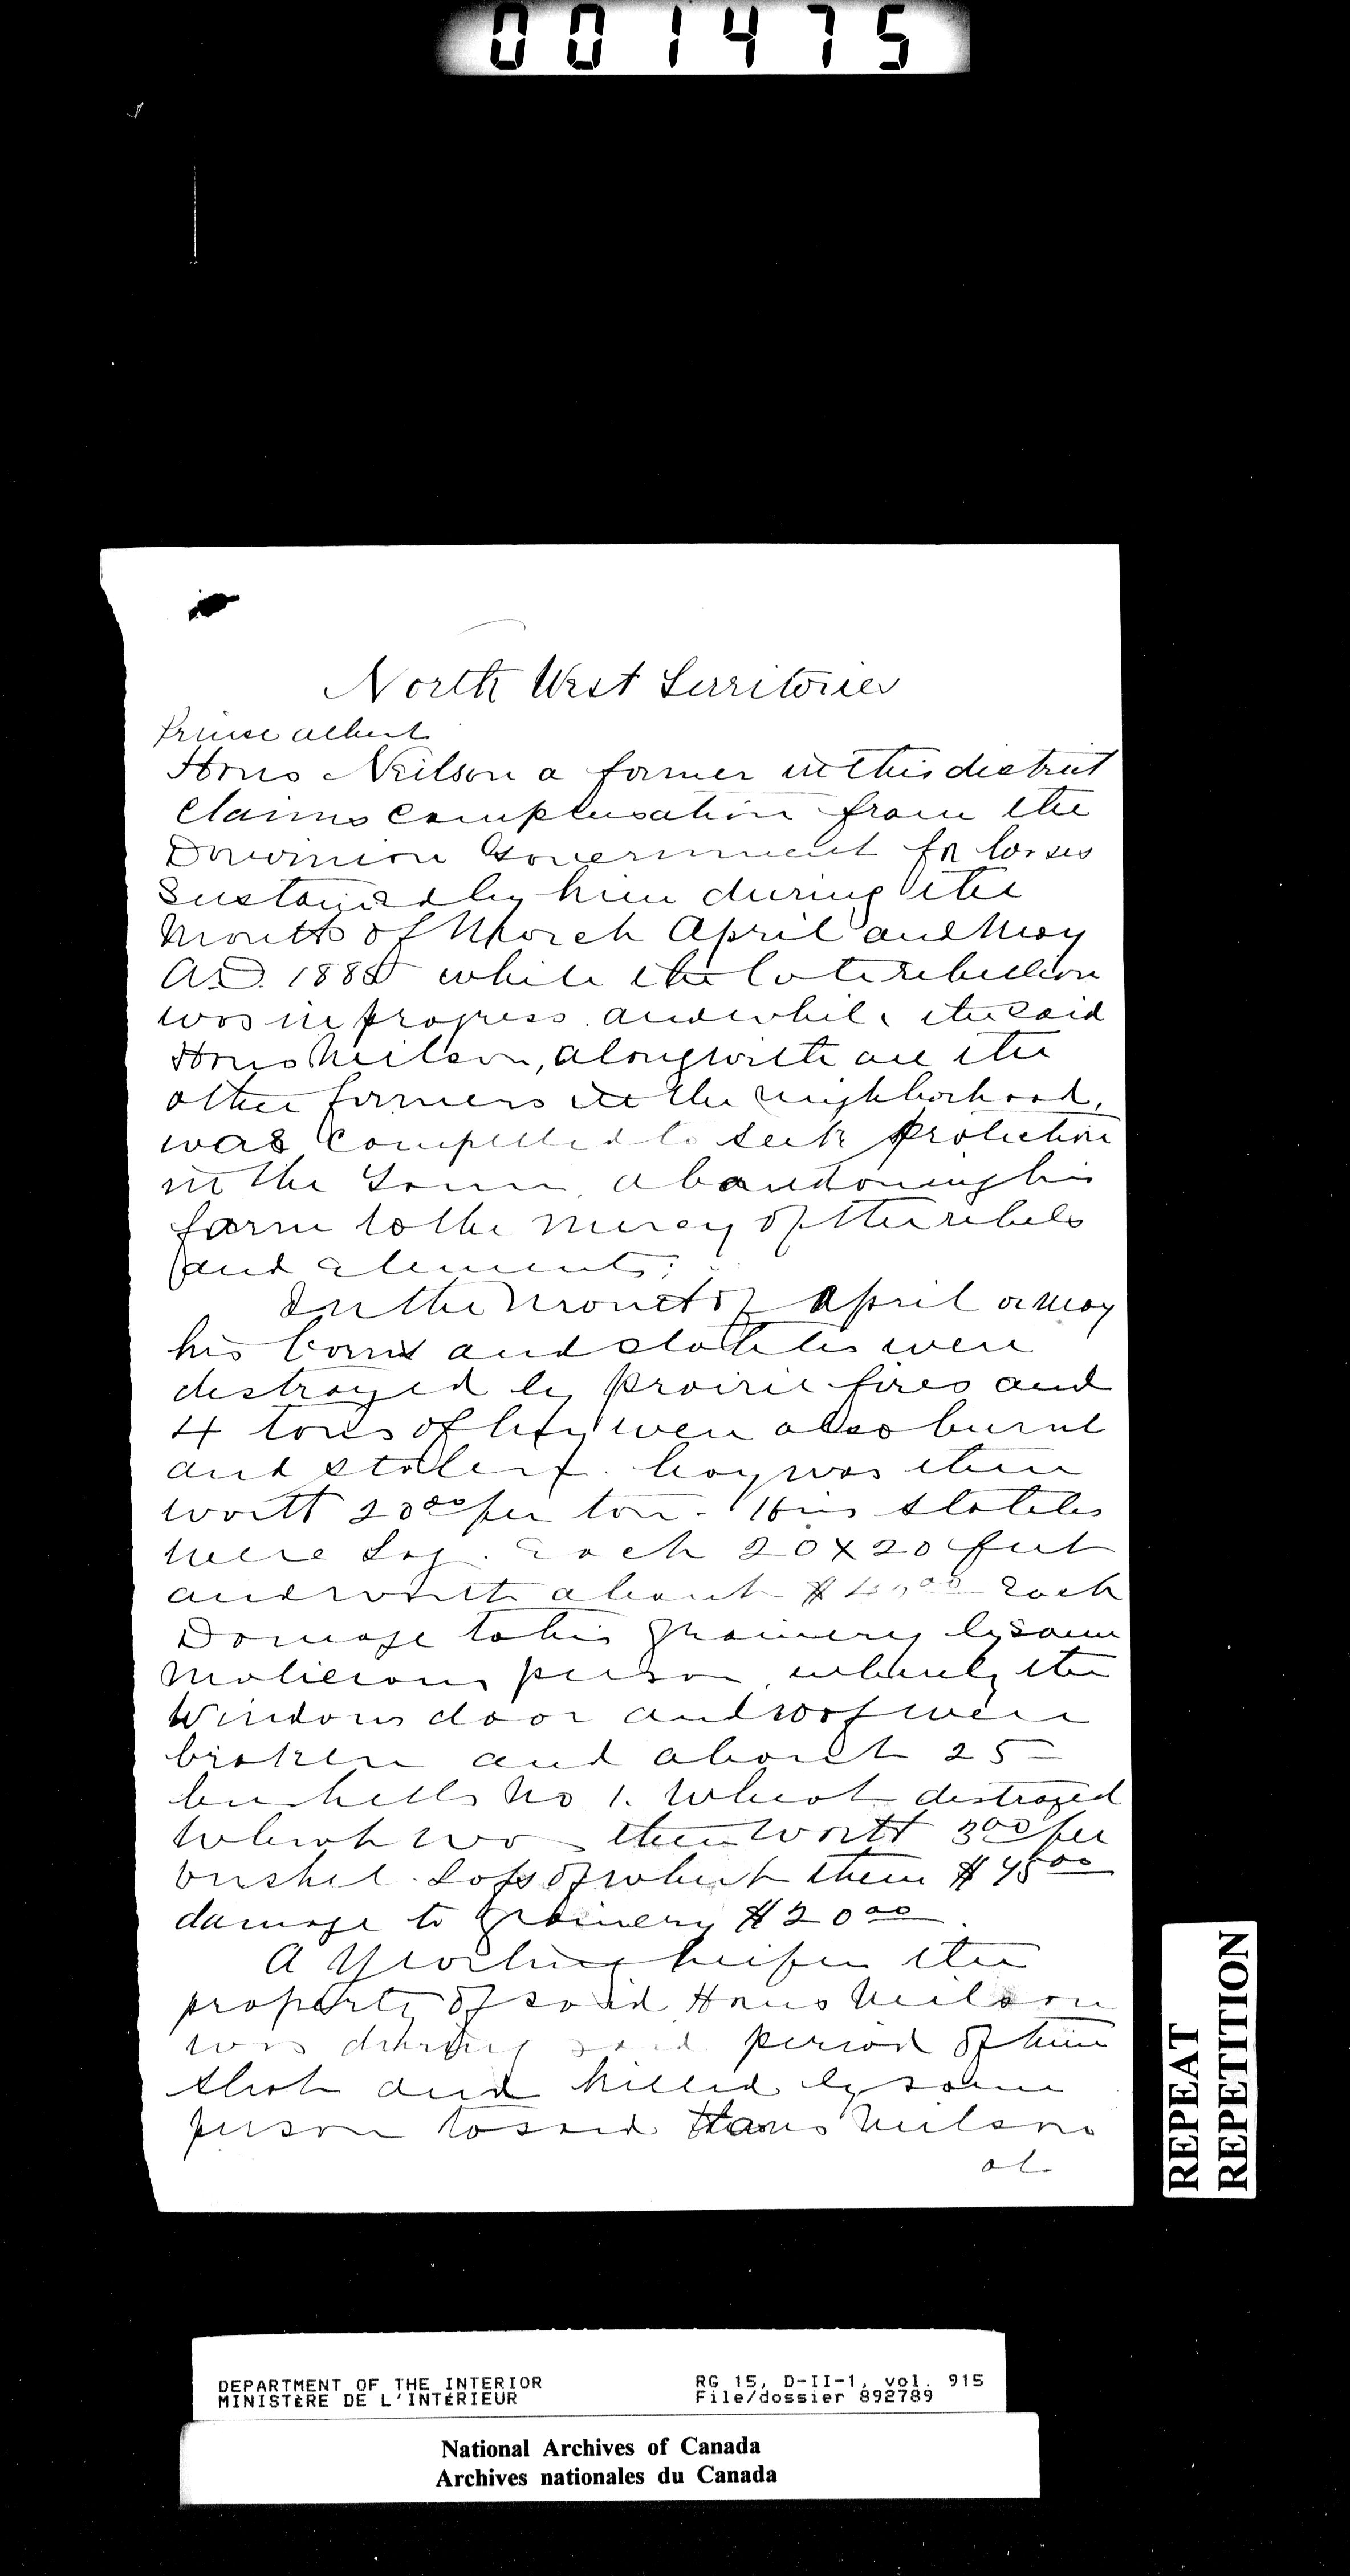 001475
North West Territories
Prince Albert
Hans Neilson a farmer in this district
claims compensation from the
Dominion Government for losses
sustained by him during the
months of March April and May
A.D. 1885 while the late rebellion
was in progress and while the said
Hans Neilson, along with all the
other farmers in the neighborhood,
was compelled to seek protection
in the Town, abandoning his
farm to the mercy of the rebels
and elements;
In the month of April or May
his barns and stables were
destroyed by prairie fires and
4 tons of hay were also burnt
and stolen. hay was then
worth 20 00 per ton. His stables
were Log. Each 20 x 20 feet
and worth about $ each
Damage to his grainery by some
malicious person, whereby the
Windows door and roof were
broken and about 25
bushells No 1. Wheat destroyed
Wheat was then worth 3 00 per
bushel. Loss of wheat then $ 75 00
damage to grainery $ 20 00.
A Yearling heifer the
property of said Hans Neilson
was during said period of time
shot and killed by some
person to said Hans Neilson
REPEAT
REPETITION
DEPARTMENT OF THE INTERIOR
MINISTÈRE DE L'INTÉRIEUR
RG 15, D-II-1, vol. 915
File/dossier 892789
National Archives of Canada
Archives nationales du Canada